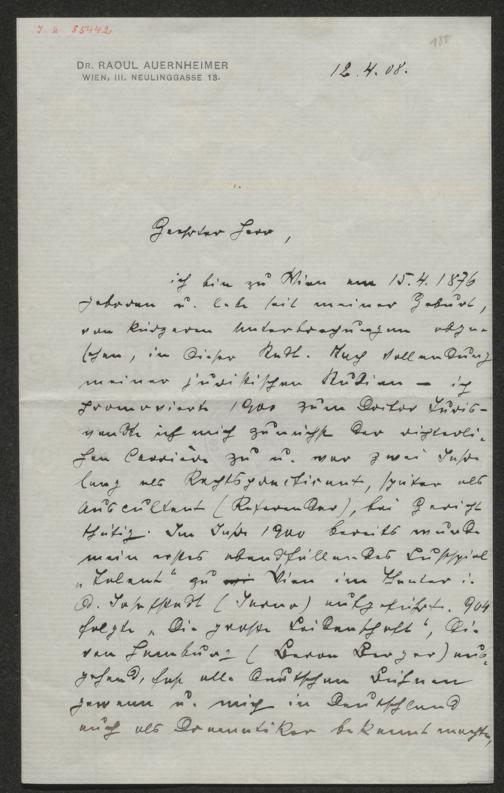 J. N. 85442
188
DR. RAOUL AUERNHEIMER
WIEN, III. NEULINGGASSE 13.
12.4.08.
Geehrter Herr,
ich bin zu Wien am 15.4.1876
geboren u. lebe seit meiner Geburt,
von kürzeren Unterbrechungen abge-
sehen, in dieser Stadt. Nach Vollendung
meiner juristischen Studien – ich
promovierte 1900 zum Doktor Juris –
wandte ich mich zunächst der richterli-
chen Carrière zu u. war zwei Jahre
lang als Rechtspracticant, später als
Auscultant (Referendar), bei Gericht
thätig. Im Jahre 1900 bereits wurde
mein erstes abendfüllendes Lustspiel
„Talent" zu Wien im Theater i.
d. Josefstadt (Jarno) aufgeführt. 904
folgte „Die große Leidenschaft", die
von Hamburg (Baron Berger) aus-
gehend, fast alle deutschen Bühnen
gewann u. mich in Deutschland
auch als Dramatiker bekannt machte,